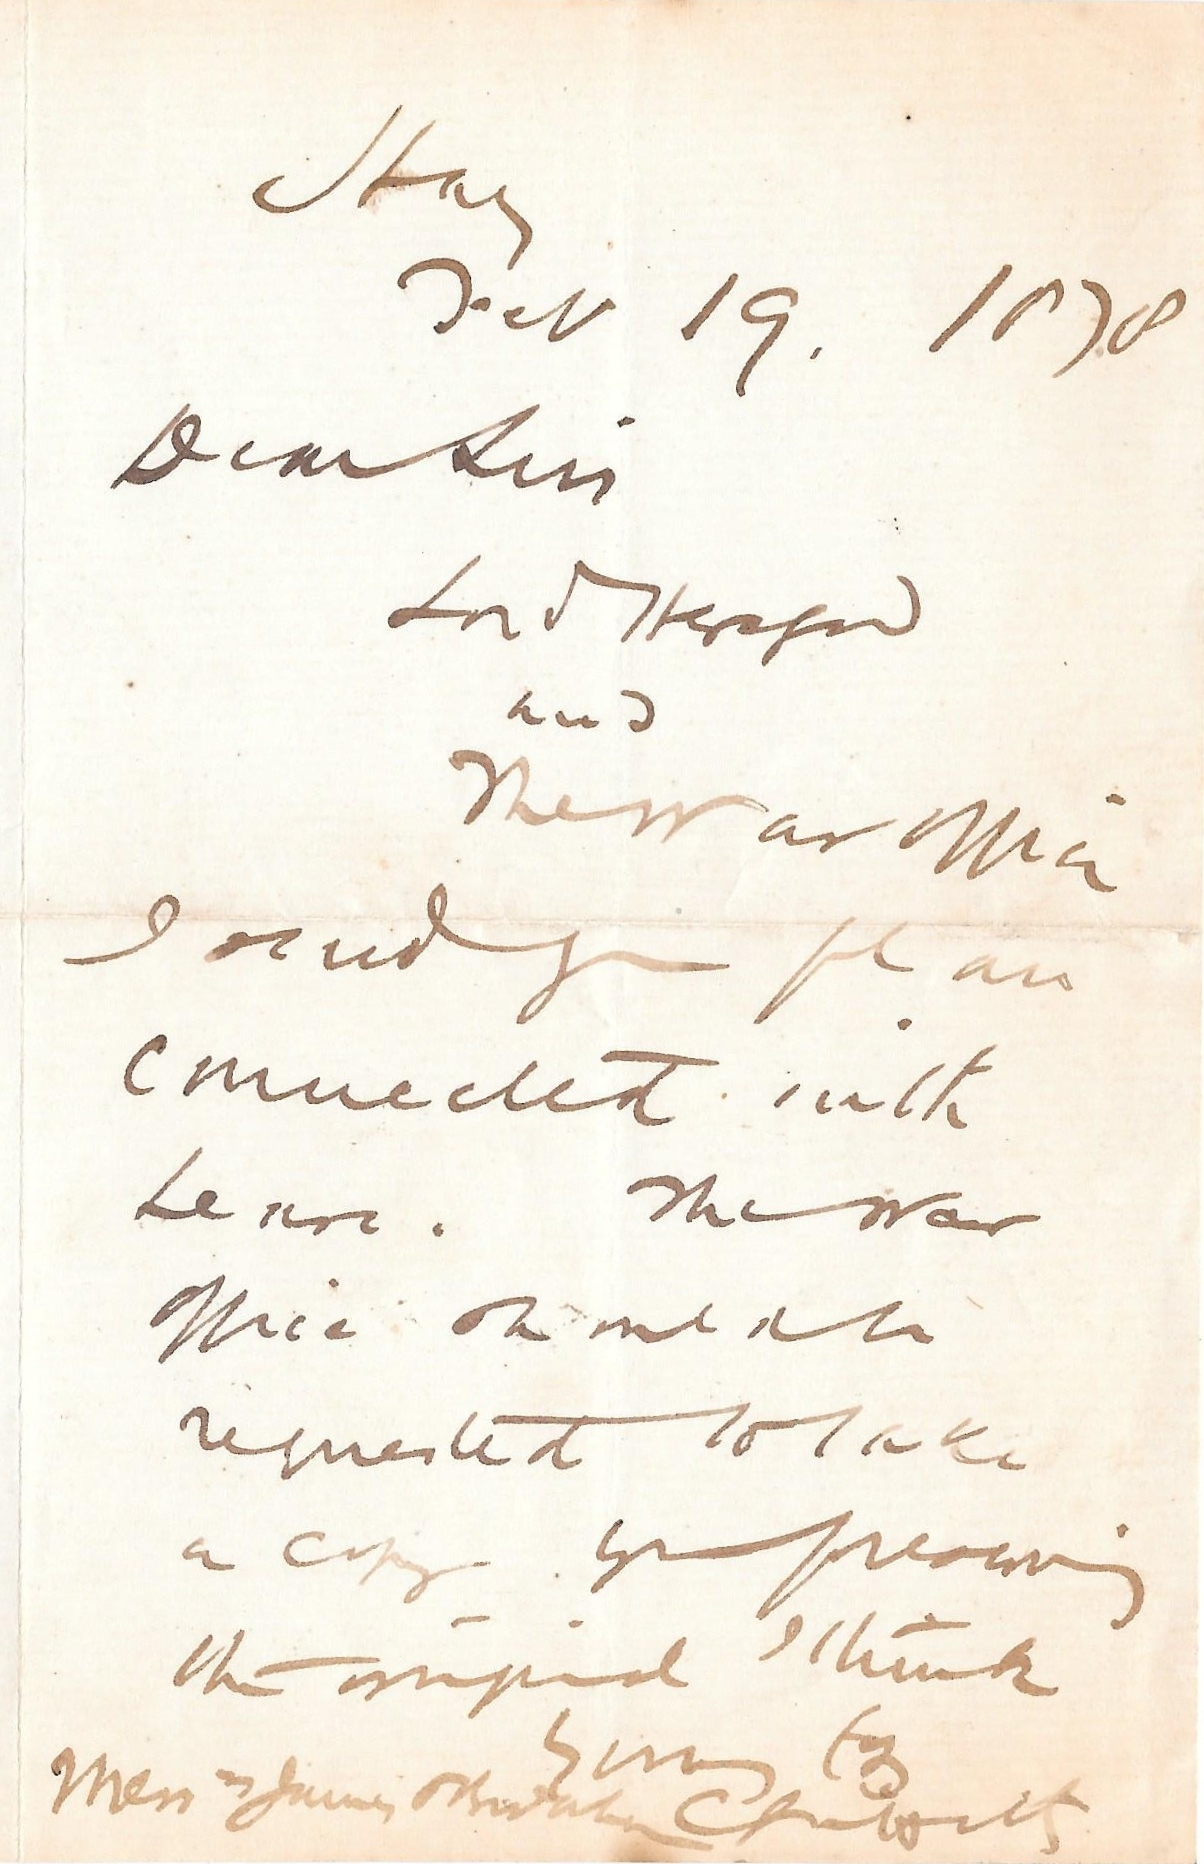 Hay
Feb 19. 1878
Dear Sirs
Lord Hereford
and
The War Office
I send you plan
connected with
Lease. The War
Office should be
requested to take
a copy you preserving
the original I think
Yours fy
Messrs James &